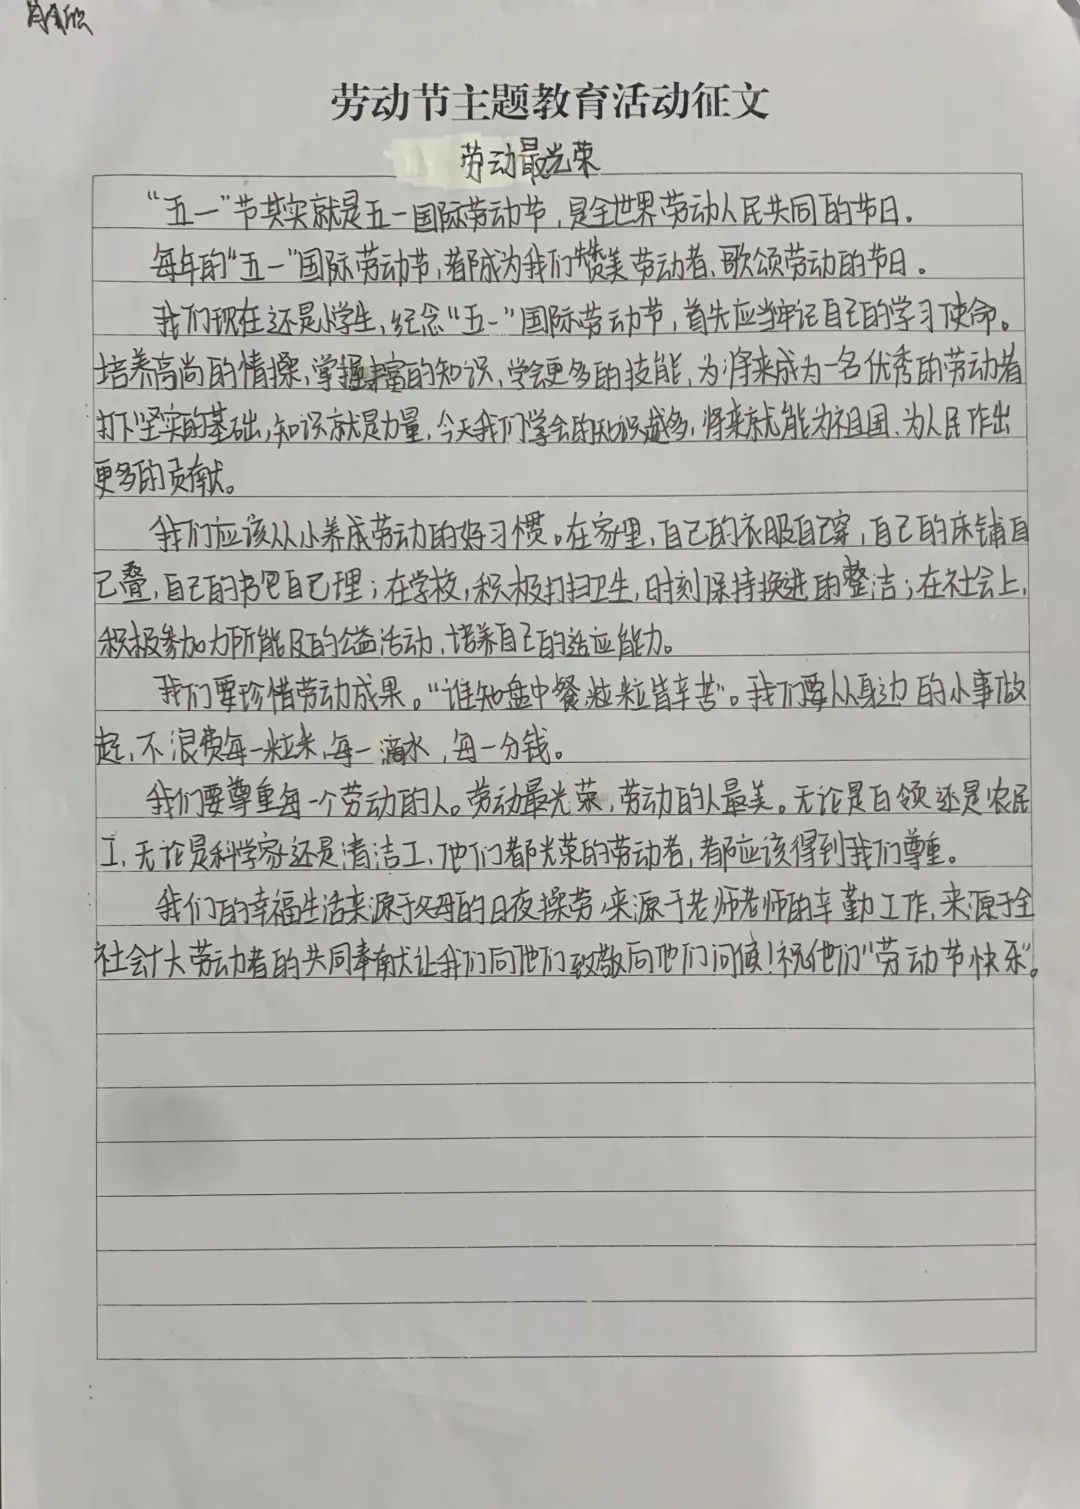 劳动节主题教育活动征文
劳动最光荣
“五一”节其实就是五一国际劳动节，是全世界劳动人民共同的节日.
每年的“五一”国际劳动节，都成为我们赞美劳动者、歌颂劳动的节日.
我们现在还是小学生，纪念“五一”国际劳动节，首先应当牢记自己的学习使命。
培养高尚的情操，掌握丰富的知识，学会更多的技能，为将来成为一名优秀的劳动者
打下坚实的基础，知识就是力量，今天我们学会的知识越多，将来就能为祖国、为人民作出
更多的贡献。
我们应该从小养成劳动的好习惯。在家里，自己的衣服自己穿，自己的床铺自
己叠，自己的书包自己理；在学校，积极打扫卫生，时刻保持换进的整洁；在社会上，
积极参加力所能及的公益活动，培养自己的适应能力。
我们要珍惜劳动成果。“谁知盘中餐，粒粒皆辛苦”。我们要从身边的小事做
起，不浪费每一粒米，每一滴水，每一分钱。
我们要尊重每一个劳动的人。劳动最光荣，劳动的人最美。无论是白领还是农民
工，无论是科学家还是清洁工，他们都光荣的劳动者，都应该得到我们尊重。
我们的幸福生活来源于父母的日夜操劳，来源于老师老师的辛勤工作，来源于全
社会广大劳动者的共同奉献让我们向他们致敬向他们问候！祝他们“劳动节快乐”。